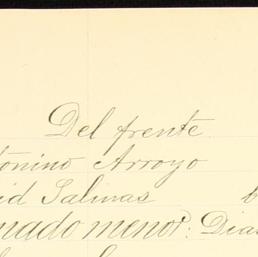 Del frente
tonino Arroyo
id Salinas
mado menor: Dias